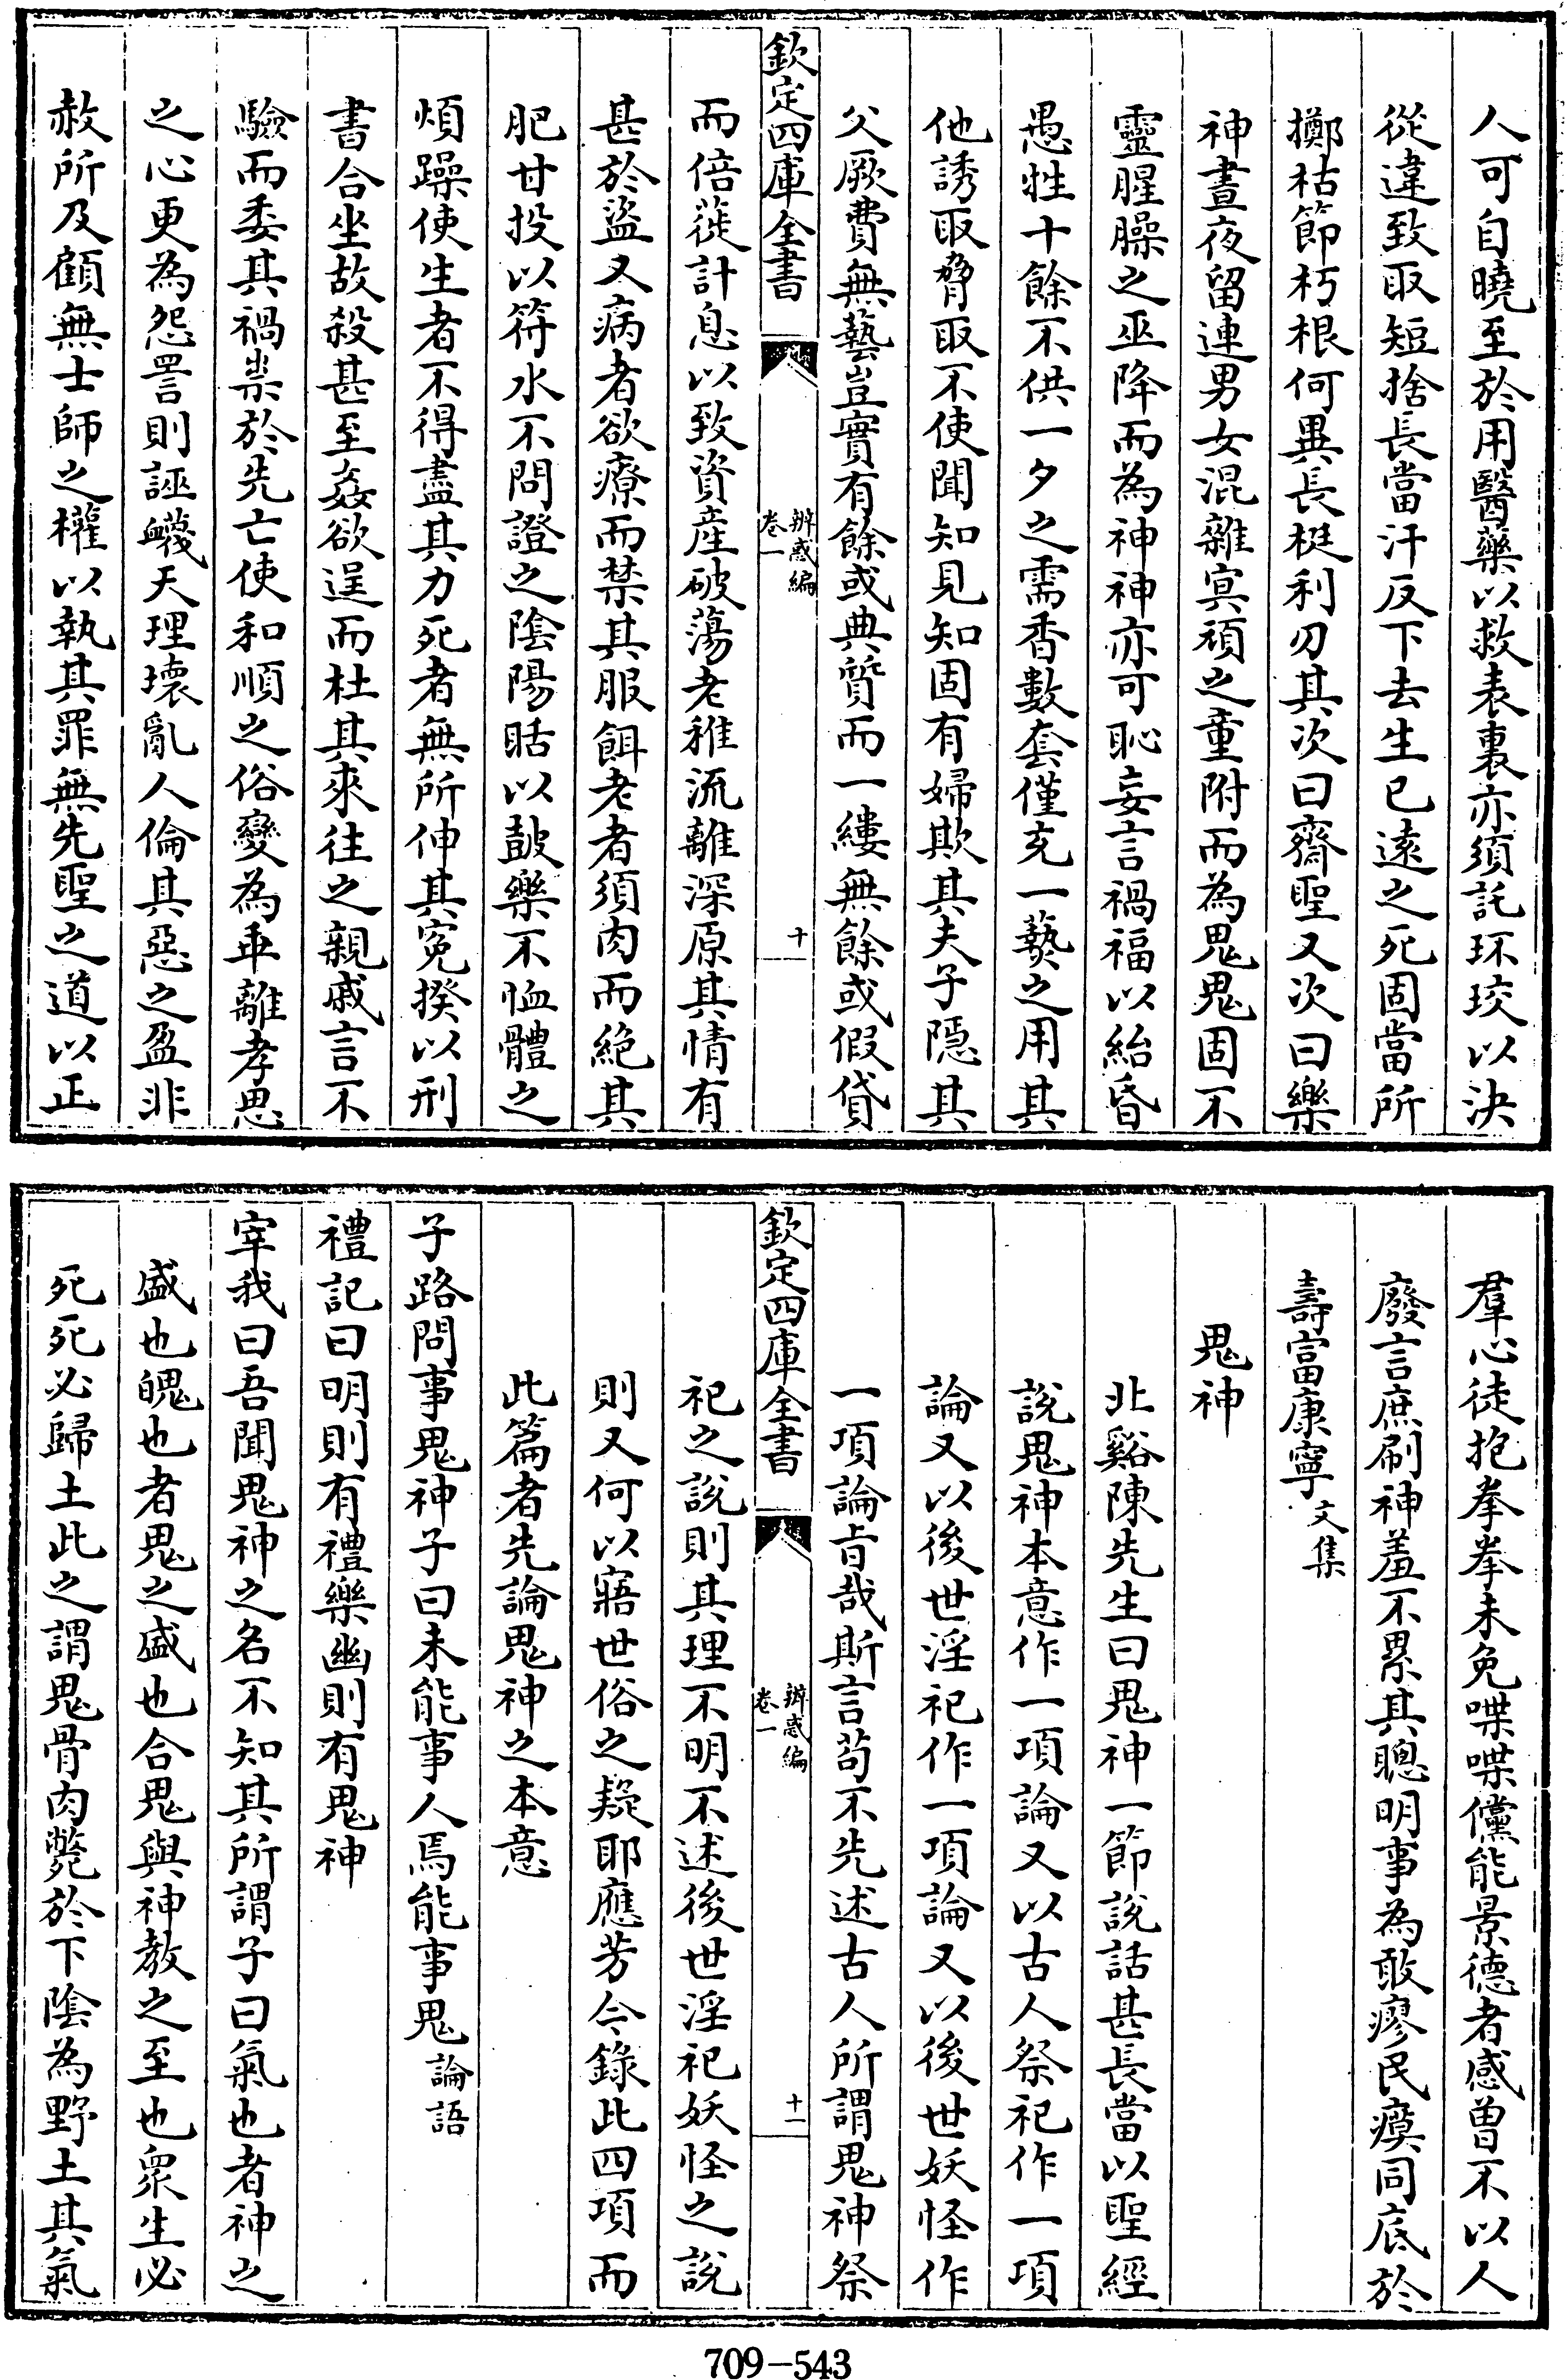 人可自曉至於用醫藥以救表裏亦須託环珓以決
從違致取短捨長當汗反下去生已遠之死固當所
擲枯節朽根何異長梃利刃其次曰齋聖又次曰樂
神晝夜留連男女混雜冥頑之童附而為鬼鬼固不
靈腥臊之巫降而為神神亦可恥妄言禍福以紿昏
愚牲十餘不供一夕之需香數套僅充一爇之用其
他誘取脅取不使聞知見知固有婦欺其夫子隱其
父厥費無藝豈實有餘或典質而一縷無餘或假貸
欽定四庫全書
辨惑編
卷一
十
而倍蓰計息以致資產破蕩老稚流離深原其情有
甚於盜又病者欲療而禁其服餌老者須肉而絶其
肥甘投以符水不問證之陰陽聒以鼓樂不恤體之
煩躁使生者不得盡其力死者無所伸其寃揆以刑
書合坐故殺甚至姦欲逞而杜其來往之親戚言不
驗而委其禍祟於先亡使和順之俗變為乖離孝思
之心更為怨詈則誣衊天理壞亂人倫其惡之盈非
赦所及顧無士師之權以執其罪無先聖之道以正
羣心徒抱拳拳未免喋喋儻能景德者感曾不以人
廢言庶刷神羞不累其聰明事為敢瘳民瘼同底於
壽富康寧文集
鬼神
北谿陳先生曰鬼神一節說話甚長當以聖經
說鬼神本意作一項論又以古人祭祀作一項
論又以後世淫祀作一項論又以後世妖怪作
一項論旨哉斯言茍不先述古人所謂鬼神祭
欽定四庫全書
辨惑編
卷一
十一
祀之說則其理不明不述後世淫祀妖怪之說
則又何以寤世俗之疑耶應芳今錄此四項而
此篇者先論鬼神之本意
子路問事鬼神子曰未能事人焉能事鬼論語
禮記曰明則有禮樂幽則有鬼神
宰我曰吾聞鬼神之名不知其所謂子曰氣也者神之
盛也魄也者鬼之盛也合鬼與神教之至也衆生必
死死必歸土此之謂鬼骨肉斃於下陰為野土其氣
709-543